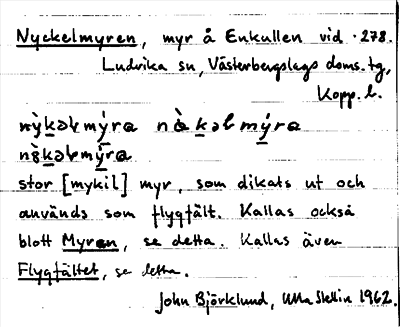 Nyckelmyren, myr å Enkullen vid ·278.
Ludvika sn, Västerbergslags doms. tg,
Kopp. l.
nỳkəɫmýra nɑ̀kəɫmýra
nỳkəɫmýra
stor [mykil] myr, som dikats ut och
används som flygfält. Kallas också
blott Myren, se detta. Kallas även
Flygfältet, se detta.
John Björklund, Ulla Stellin 1962.